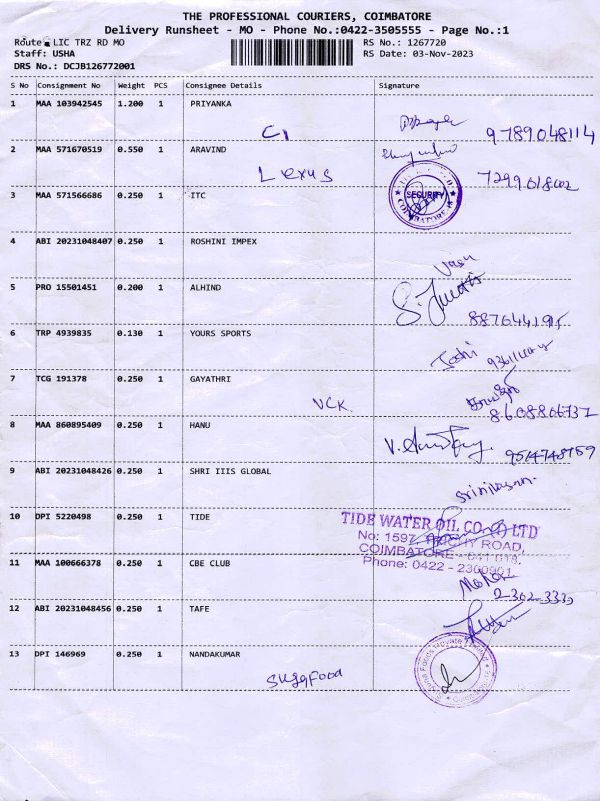 THE PROFESSIONAL COURIERS, COIMBATORE
Delivery Runsheet - MO - Phone No.:0422-3505555 - Page No.:1
Route: LIC TRZ RD MO RS No.: 1267720
Staff: USHA RS Date: 03-Nov-2023
DRS No.: DCJB126772001
S No Consignment No Weight PCS Consignee Details Signature
1 MAA 103942545 1.200 1 PRIYANKA
C1 9789048114
2 MAA 571670519 0.550 1 ARAVIND
Lexus 7299018002
3 MAA 571566686 0.250 1 ITC
SECURITY
COIMBATORE
4 ABI 20231048407 0.250 1 ROSHINI IMPEX
Vasu
5 PRO 15501451 0.200 1 ALHIND
8876441915
6 TRP 4939835 0.130 1 YOURS SPORTS
Joshi
7 TCG 191378 0.250 1 GAYATHRI
VCK. 8608806737
8 MAA 860895409 0.250 1 HANU
9514748759
9 ABI 20231048426 0.250 1 SHRI IIIS GLOBAL
Srinivasan.
10 DPI 5220498 0.250 1 TIDE
TIDE WATER OIL CO. (I) LTD
No: 1597, TRICHY ROAD,
COIMBATORE - 641 018.
Phone: 0422 - 2300901
11 MAA 100666378 0.250 1 CBE CLUB
2302 3333
12 ABI 20231048456 0.250 1 TAFE
13 DPI 146969 0.250 1 NANDAKUMAR
Foods Private Limited